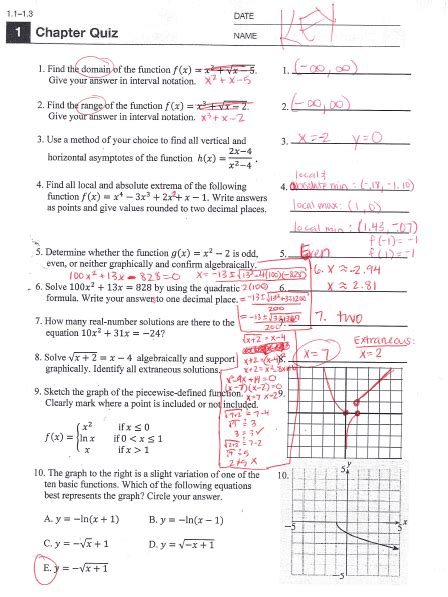 1.1–1.3
DATE
KEY
1 Chapter Quiz
NAME
1. Find the domain of the function f(x) = x² + √x − 5.
Give your answer in interval notation. x² + x − 5
1. (−∞, ∞)
2. Find the range of the function f(x) = x³ + √x − 2.
Give your answer in interval notation. x³ + x − 2
2. (−∞, ∞)
3. Use a method of your choice to find all vertical and
horizontal asymptotes of the function h(x) = (2x−4)/(x²−4).
3. x = −2 y = 0
4. Find all local and absolute extrema of the following
function f(x) = x⁴ − 3x³ + 2x² + x − 1. Write answers
as points and give values rounded to two decimal places.
local &
4. absolute min: (−.18, −1.10)
local max: (1, 0)
local min: (1.43, −.07)
f(−1) = −1
f(1) = −1
5. Determine whether the function g(x) = x² − 2 is odd,
even, or neither graphically and confirm algebraically.
5. Even
100x² + 13x − 828 = 0
x = −13 ± √13² − 4(100)(−828)
2(100)
6. Solve 100x² + 13x = 828 by using the quadratic
formula. Write your answer to one decimal place.
= −13 ± √13² + 331200
200
= −13 ± √331369
200
6.
6. x ≈ −2.94
x ≈ 2.81
7. How many real-number solutions are there to the
equation 10x² + 31x = −24?
7. two
8. Solve √x + 2 = x − 4 algebraically and support
graphically. Identify all extraneous solutions.
8. x = 7
EXTRANEOUS:
x = 2
√x+2 = x−4
x² − 9x + 14 = 0
(x−7)(x−2) = 0
x = 7 x = 2
√7+2 = 7−4
√9 = 3
3 = 3 ✓
9. Sketch the graph of the piecewise-defined function.
Clearly mark where a point is included or not included.
9.
f(x) = { x² if x ≤ 0
ln x if 0 < x ≤ 1
x if x > 1
10. The graph to the right is a slight variation of one of the
ten basic functions. Which of the following equations
best represents the graph? Circle your answer.
10.
5 y
−5
5 x
−5
A. y = −ln(x + 1) B. y = −ln(x − 1)
C. y = −√x + 1 D. y = √−x + 1
E. y = −√x + 1